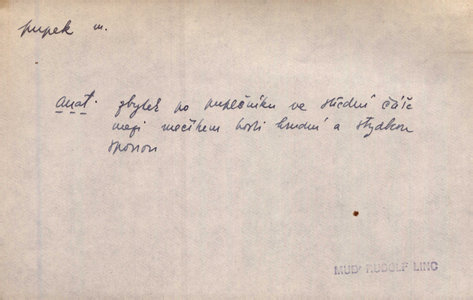 pupek m.
anat. zbytek po pupečníku ve střední čáře
mezi mečíkem kosti hrudní a stydkou
sponou
MUDr RUDOLF LINC